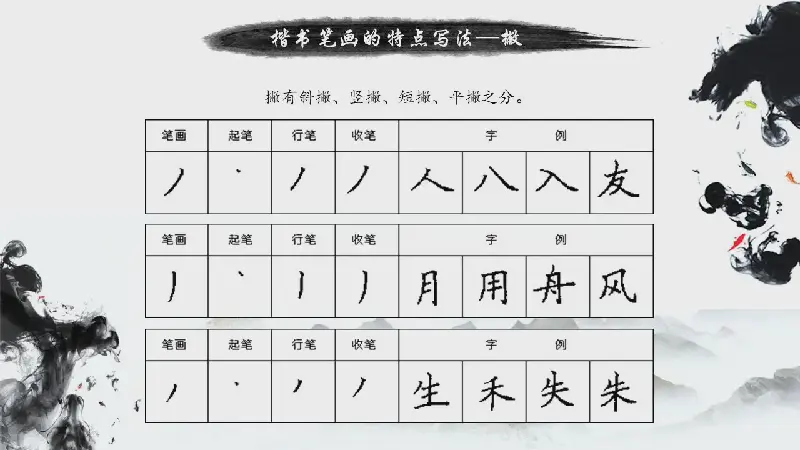 楷书笔画的特点写法—撇
撇有斜撇、竖撇、短撇、平撇之分。
笔画 起笔 行笔 收笔 字 例
丿 丶 丿 丿 人 八 入 友
笔画 起笔 行笔 收笔 字 例
丿 丶 丨 丿 月 用 舟 风
笔画 起笔 行笔 收笔 字 例
丿 丶 丿 丿 生 禾 失 朱